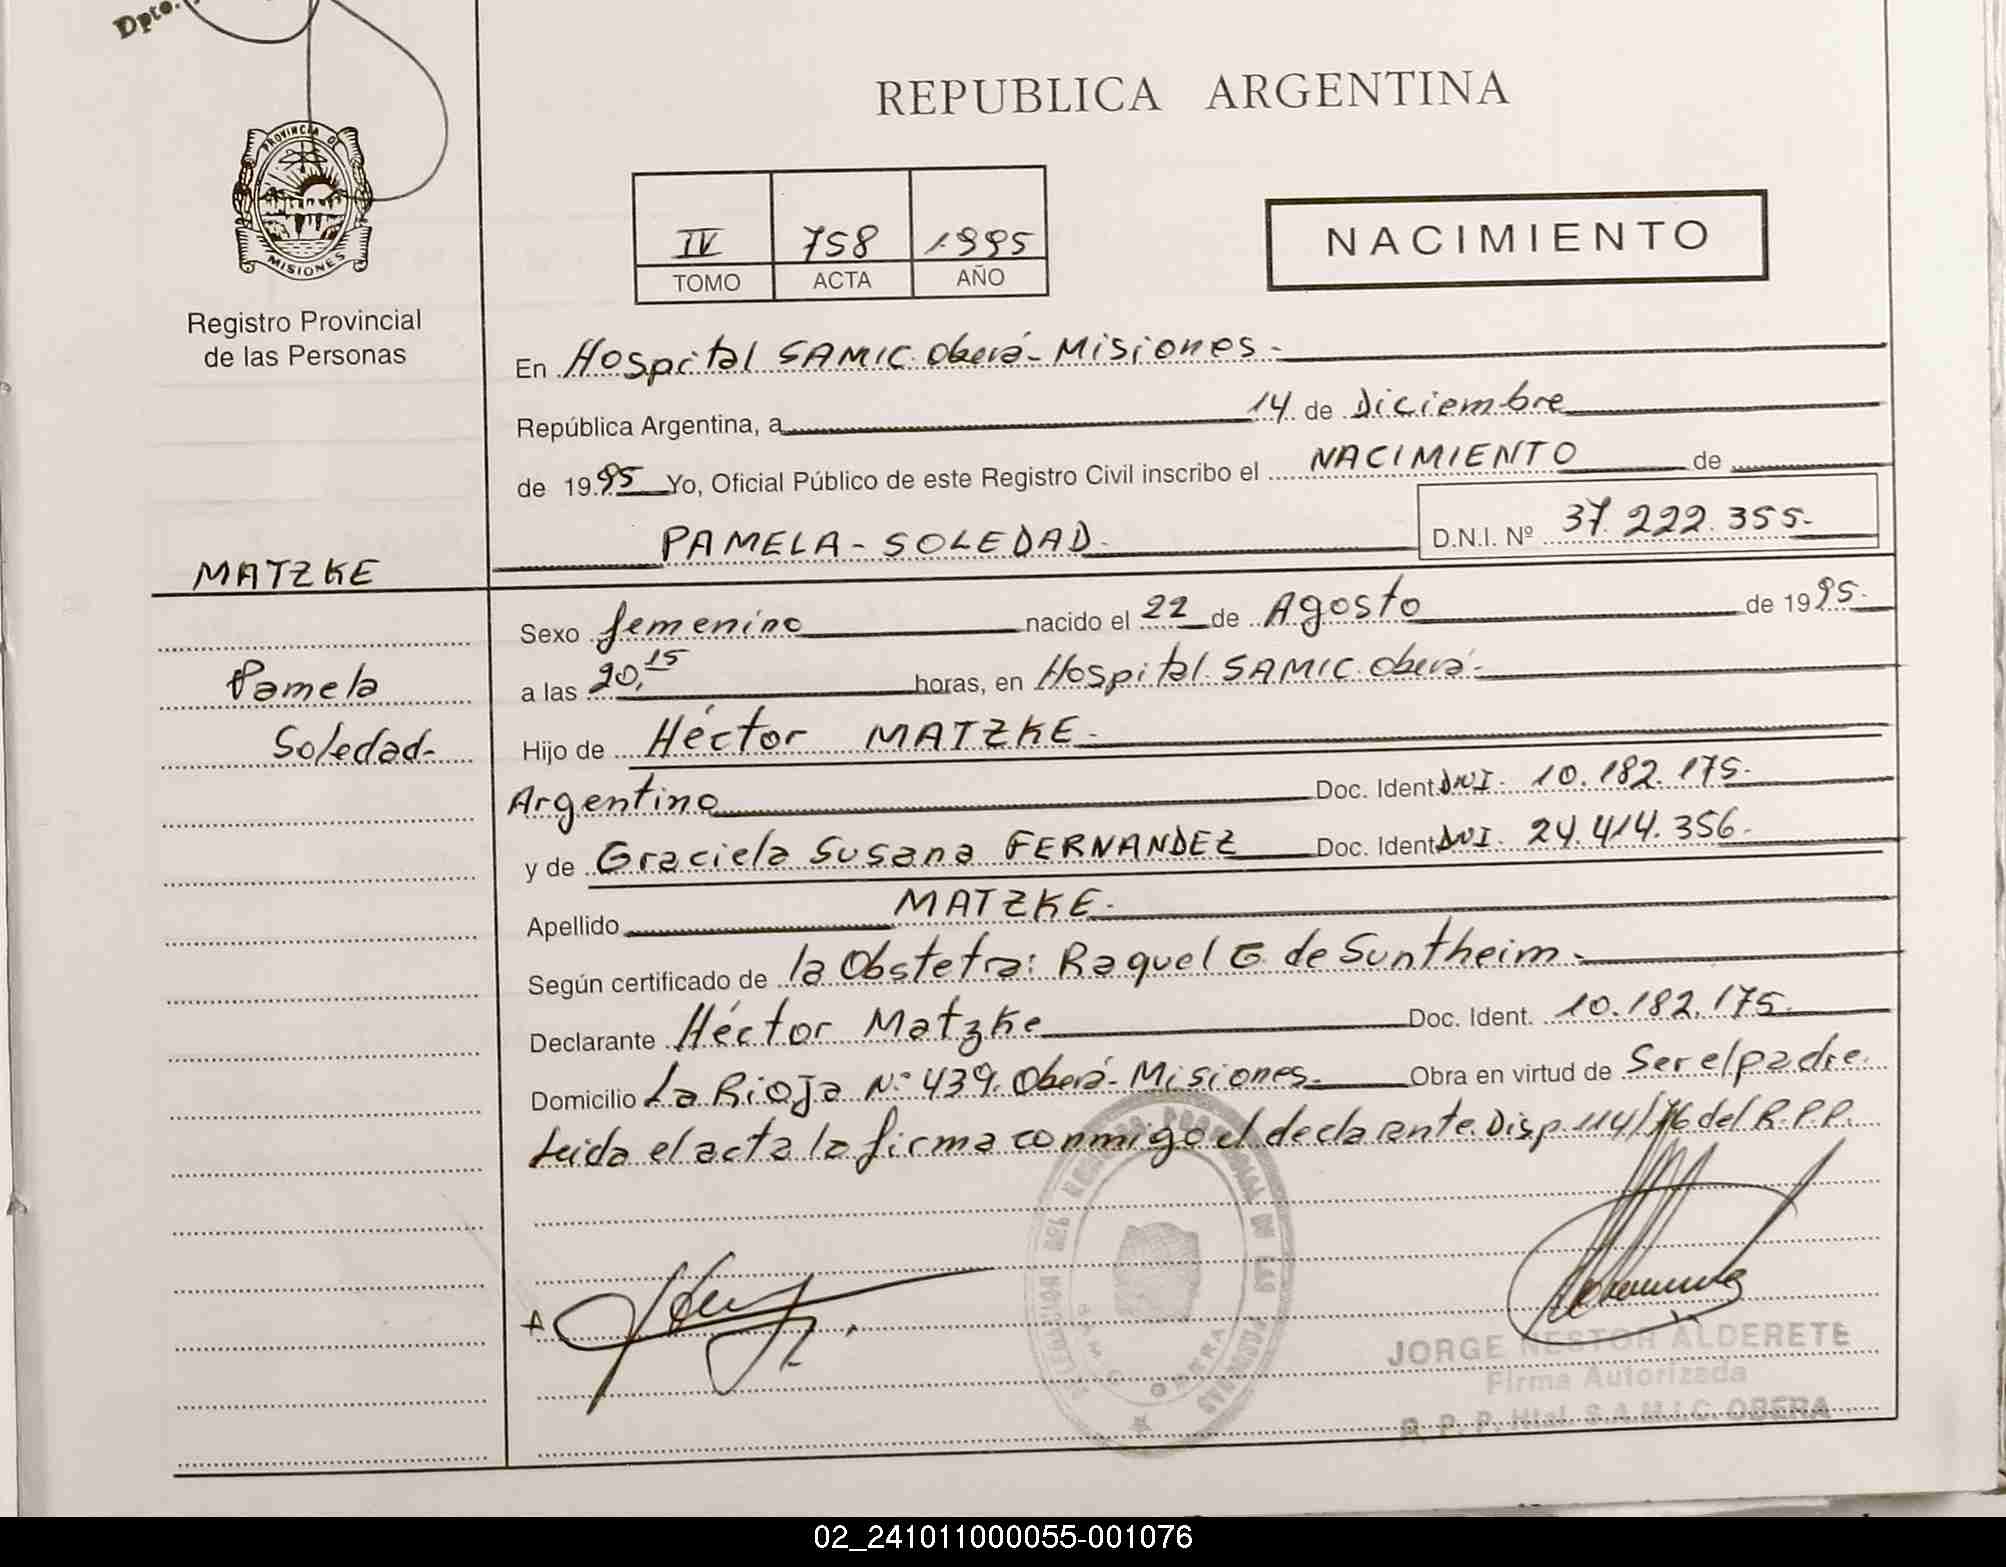 Dpto.
REPUBLICA ARGENTINA
PROVINCIA DE
MISIONES
Registro Provincial
de las Personas
IV 758 1995
TOMO ACTA AÑO
NACIMIENTO
En Hospital SAMIC. Oberá - Misiones -
República Argentina, a 14 de Diciembre
de 1995 Yo, Oficial Público de este Registro Civil inscribo el NACIMIENTO de
PAMELA - SOLEDAD - D.N.I. Nº 37.222.355-
MATZKE
Pamela
Soledad-
Sexo femenino nacido el 22 de Agosto de 1995-
a las 20,15 horas, en Hospital SAMIC. Oberá-
Hijo de Héctor MATZKE-
Argentino Doc. Ident DNI. 10.182.175-
y de Graciela Susana FERNANDEZ Doc. Ident DNI. 24.414.356-
Apellido MATZKE-
Según certificado de la Obstetra: Raquel G. de Suntheim-
Declarante Héctor Matzke Doc. Ident. 10.182.175-
Domicilio La Rioja Nº 439. Oberá - Misiones- Obra en virtud de Ser el padre.
Leida el acta la firma conmigo el declarante. Disp. 114/76 del R.P.P.
JORGE NESTOR ALDERETE
Firma Autorizada
R. P. P. Htal. S.A.M.I.C. OBERA
02_241011000055-001076